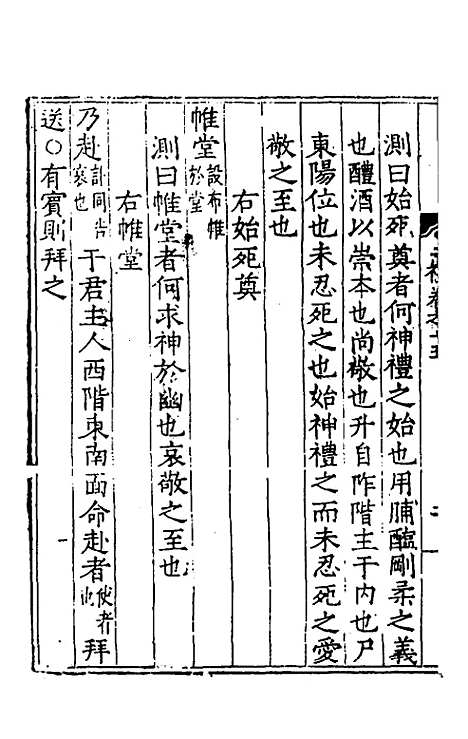 測曰始死奠者何神禮之始也用脯醢剛柔之義
也醴酒以崇本也尚敬也升自阼階主于內也尸
東陽位也未忍死之也始神禮之而未忍死之愛
敬之至也
右始死奠
帷堂設布帷於堂
測曰帷堂者何求神於幽也哀敬之至也
右帷堂
乃赴訃同告哀也于君主人西階東南面命赴者使者也拜
送○有賓則拜之